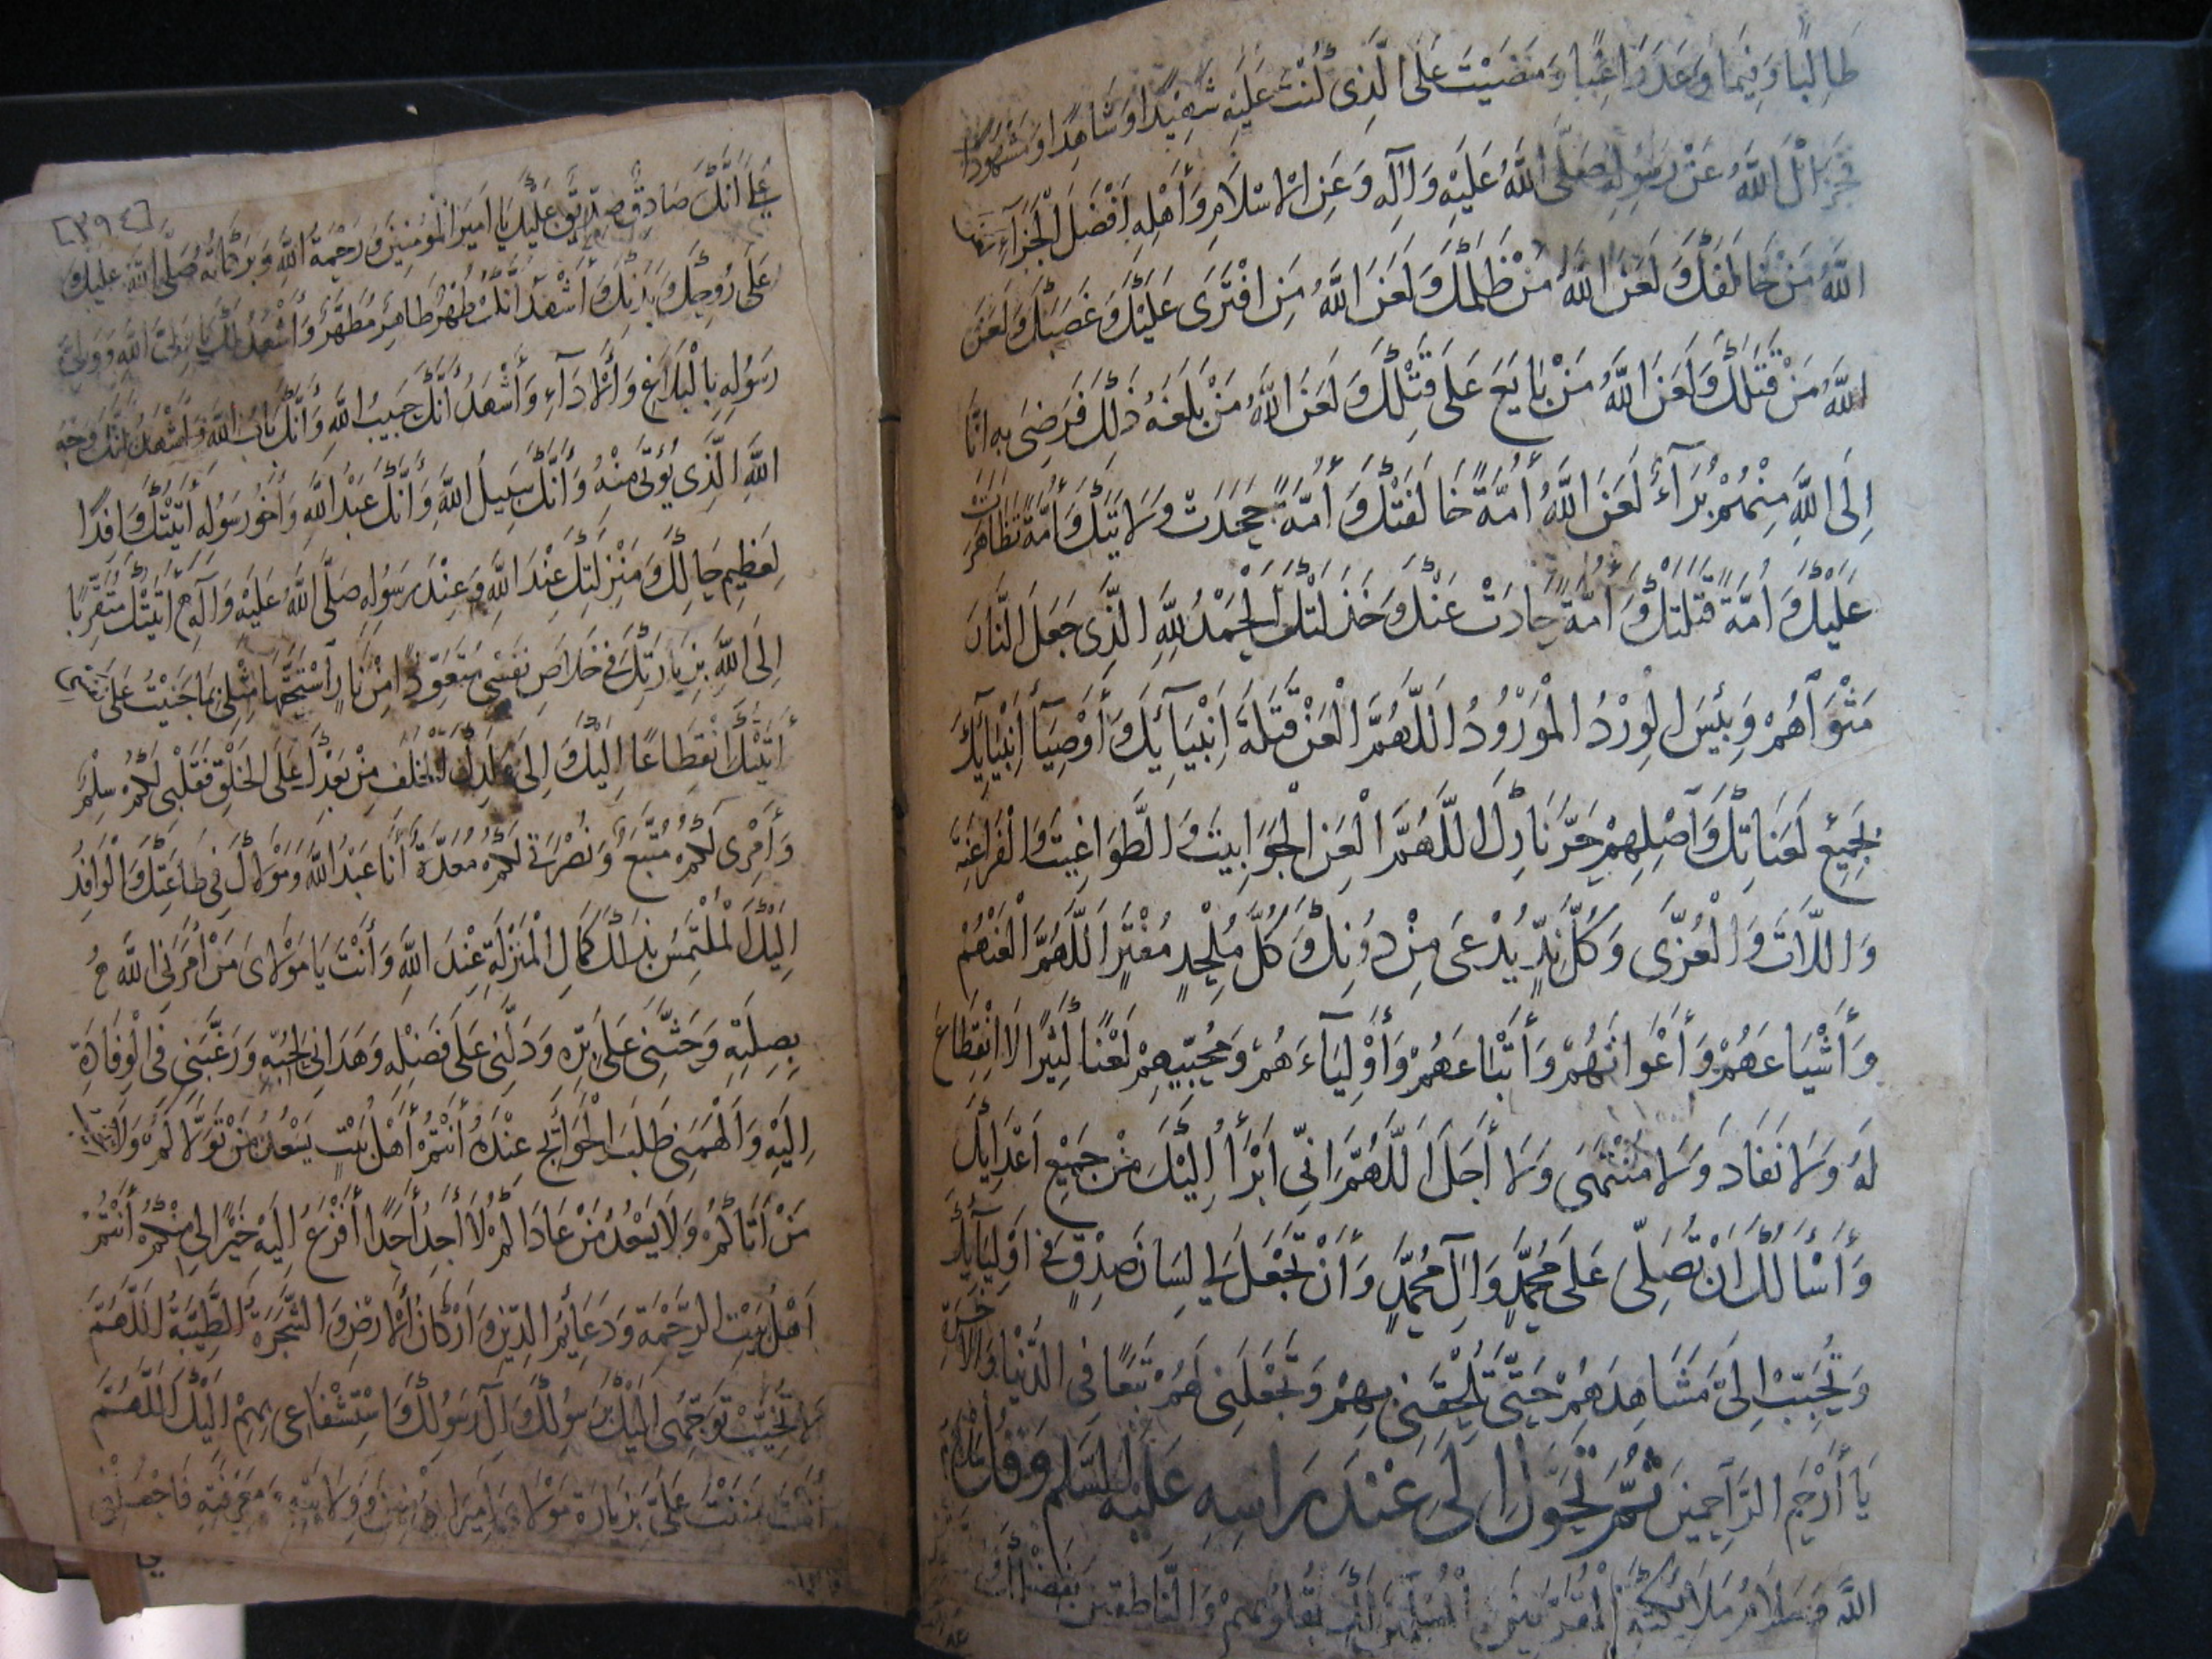 طَالِبًا وَفِيمَا وَعَدَ رَاغِبًا وَمَضَيْتَ عَلَى الَّذِى كُنْتَ عَلَيْهِ شَهِيدًا وَشَاهِدًا وَمَشْهُودًا
فَجَزَاكَ اللَّهُ عَنْ رَسُولِهِ صَلَّى اللَّهُ عَلَيْهِ وَآلِهِ وَعَنِ الْإِسْلَامِ وَأَهْلِهِ أَفْضَلَ الْجَزَاءِ
اللَّهُ مَنْ خَالَفَكَ وَلَعَنَ اللَّهُ مَنْ ظَلَمَكَ وَلَعَنَ اللَّهُ مَنِ افْتَرَى عَلَيْكَ وَغَصَبَكَ وَلَعَنَ
اللَّهُ مَنْ قَتَلَكَ وَلَعَنَ اللَّهُ مَنْ بَايَعَ عَلَى قَتْلِكَ وَلَعَنَ اللَّهُ مَنْ بَلَغَهُ ذَلِكَ فَرَضِىَ بِهِ اِنَّا
اِلَى اللَّهِ مِنْهُمْ بُرَآءُ لَعَنَ اللَّهُ أُمَّةً خَالَفَتْكَ وَ أُمَّةً جَحَدَتْ وِلَايَتَكَ وَأُمَّةً تَظَاهَرَتْ
عَلَيْكَ وَ اُمَّةً قَتَلَتْكَ وَ اُمَّةً حَادَتْ عَنْكَ وَخَذَلَتْكَ اَلْحَمْدُ لِلَّهِ الَّذِى جَعَلَ النَّارَ
مَثْوَاهُمْ وَبِئْسَ الْوِرْدُ الْمَوْرُودُ اَللَّهُمَّ الْعَنْ قَتَلَةَ اَنْبِيَائِكَ وَ أَوْصِيَآءِ اَنْبِيَائِكَ
بِجَمِيعِ لَعَنَاتِكَ وَاَصْلِهِمْ حَرَّ نَارِكَ اَللَّهُمَّ الْعَنِ الْجَوَابِيتَ وَ الطَّوَاغِيتَ وَالْفَرَاعِنَةَ
وَ اللَّاتَ وَ الْعُزَّى وَكُلَّ نِدٍّ يُدْعَى مِنْ دُونِكَ وَ كُلَّ مُلْحِدٍ مُفْتَرٍ اَللَّهُمَّ الْعَنْهُمْ
وَ أَشْيَاعَهُمْ وَ أَعْوَانَهُمْ وَ أَتْبَاعَهُمْ وَ أَوْلِيَآءَهُمْ وَ مُحِبِّيهِمْ لَعْنًا كَثِيرًا لَا انْقِطَاعَ
لَهُ وَ لَا نَفَادَ وَ لَا مُنْتَهَى وَ لَا أَجَلَ اَللَّهُمَّ اِنِّى اَبْرَأُ اِلَيْكَ مِنْ جَمِيعِ اَعْدَائِكَ
وَ أَسْأَلُكَ اَنْ تُصَلِّىَ عَلَى مُحَمَّدٍ وَ آلِ مُحَمَّدٍ وَ أَنْ تَجْعَلَ لِى لِسَانَ صِدْقٍ فِى اَوْلِيَائِكَ
وَ تُحَبِّبَ اِلَىَّ مَشَاهِدَهُمْ حَتَّى تُلْحِقَنِى بِهِمْ وَ تَجْعَلَنِى لَهُمْ تَبَعًا فِى الدُّنْيَا وَ الْآخِرَةِ
يَا أَرْحَمَ الرَّاحِمِينَ ثُمَّ تَحَوَّلْ اِلَى عِنْدِ رَاسِهِ عَلَيْهِ السَّلَمُ وَ قُلْ سَلَامُ
اللَّهِ وَ سَلَامُ مَلَائِكَتِهِ الْمُقَرَّبِينَ وَ الْمُسَلِّمِينَ لَكَ بِقُلُوبِهِمْ وَ النَّاطِقِينَ بِفَضْلِكَ
[٣٩٤]
عَلَى أَنَّكَ صَادِقٌ صِدِّيقٌ عَلَيْكَ يَا اَمِيرَ الْمُؤْمِنِينَ وَ رَحْمَةُ اللَّهِ وَ بَرَكَاتُهُ صَلَّى اللَّهُ عَلَيْكَ وَ
عَلَى رُوحِكَ وَ بَدَنِكَ وَ أَشْهَدُ اَنَّكَ طُهْرٌ طَاهِرٌ مُطَهَّرٌ وَ أَشْهَدُ لَكَ يَا وَلِىَّ اللَّهِ وَ وَلِىَّ
رَسُولِهِ بِالْبَلَاغِ وَ الْأَدَآءِ وَ أَشْهَدُ أَنَّكَ حَبِيبُ اللَّهِ وَ أَنَّكَ بَابُ اللَّهِ وَ أَشْهَدُ أَنَّكَ وَجْهُ
اللَّهِ الَّذِى يُؤْتَى مِنْهُ وَ أَنَّكَ سَبِيلُ اللَّهِ وَ أَنَّكَ عَبْدُ اللَّهِ وَ أَخُو رَسُولِهِ أَتَيْتُكَ وَافِدًا
لِعَظِيمِ حَالِكَ وَ مَنْزِلَتِكَ عِنْدَ اللَّهِ وَ عِنْدَ رَسُولِهِ صَلَّى اللَّهُ عَلَيْهِ وَ آلِهِ أَتَيْتُكَ مُتَقَرِّبًا
اِلَى اللَّهِ بِزِيَارَتِكَ فِى خَلَاصِ نَفْسِى مُتَعَوِّذًا مِنْ نَارٍ اسْتَحَقَّهَا مِثْلِى بِمَا جَنَيْتُ عَلَى نَفْسِى
أَتَيْتُكَ انْقِطَاعًا اِلَيْكَ وَ اِلَى وَلَدِكَ الْخَلَفِ مِنْ بَعْدِكَ عَلَى الْخَلْقِ فَقَلْبِى لَكُمْ سِلْمٌ
وَ أَمْرِى لَكُمْ مُتَّبِعٌ وَ نُصْرَتِى لَكُمْ مُعَدَّةٌ أَنَا عَبْدُ اللَّهِ وَ مَوْلَاكَ فِى طَاعَتِكَ وَ الْوَافِدُ
اِلَيْكَ الْمُلْتَمِسُ بِذَلِكَ كَمَالَ الْمَنْزِلَةِ عِنْدَ اللَّهِ وَ أَنْتَ يَا مَوْلَاىَ مَنْ أَمَرَنِى اللَّهُ
بِصِلَتِهِ وَ حَثَّنِى عَلَى بِرِّهِ وَ دَلَّنِى عَلَى فَضْلِهِ وَ هَدَانِى لِحُبِّهِ وَ رَغَّبَنِى فِى الْوِفَادَةِ
اِلَيْهِ وَ أَلْهَمَنِى طَلَبَ الْحَوَائِجِ عِنْدَهُ أَنْتُمْ أَهْلُ بَيْتٍ يَسْعَدُ مَنْ تَوَلَّاكُمْ وَ لَا
مَنْ أَتَاكُمْ وَ لَا يَسْعَدُ مَنْ عَادَاكُمْ لَا أَجِدُ أَحَدًا أَفْزَعُ اِلَيْهِ خَيْرًا لِى مِنْكُمْ أَنْتُمْ
اَهْلُ بَيْتِ الرَّحْمَةِ وَ دَعَائِمُ الدِّينِ وَ أَرْكَانُ الْأَرْضِ وَ الشَّجَرَةُ الطَّيِّبَةُ اَللَّهُمَّ
لَا تُخَيِّبْ تَوَجُّهِى اِلَيْكَ بِرَسُولِكَ وَ آلِ رَسُولِكَ وَ اسْتِشْفَاعِى بِهِمْ اِلَيْكَ اَللَّهُمَّ
أَنْتَ مَنَنْتَ عَلَىَّ بِزِيَارَةِ مَوْلَاىَ اَمِيرِ الْمُؤْمِنِينَ وَ وِلَايَتِهِ وَ مَعْرِفَتِهِ فَاجْعَلْنِى